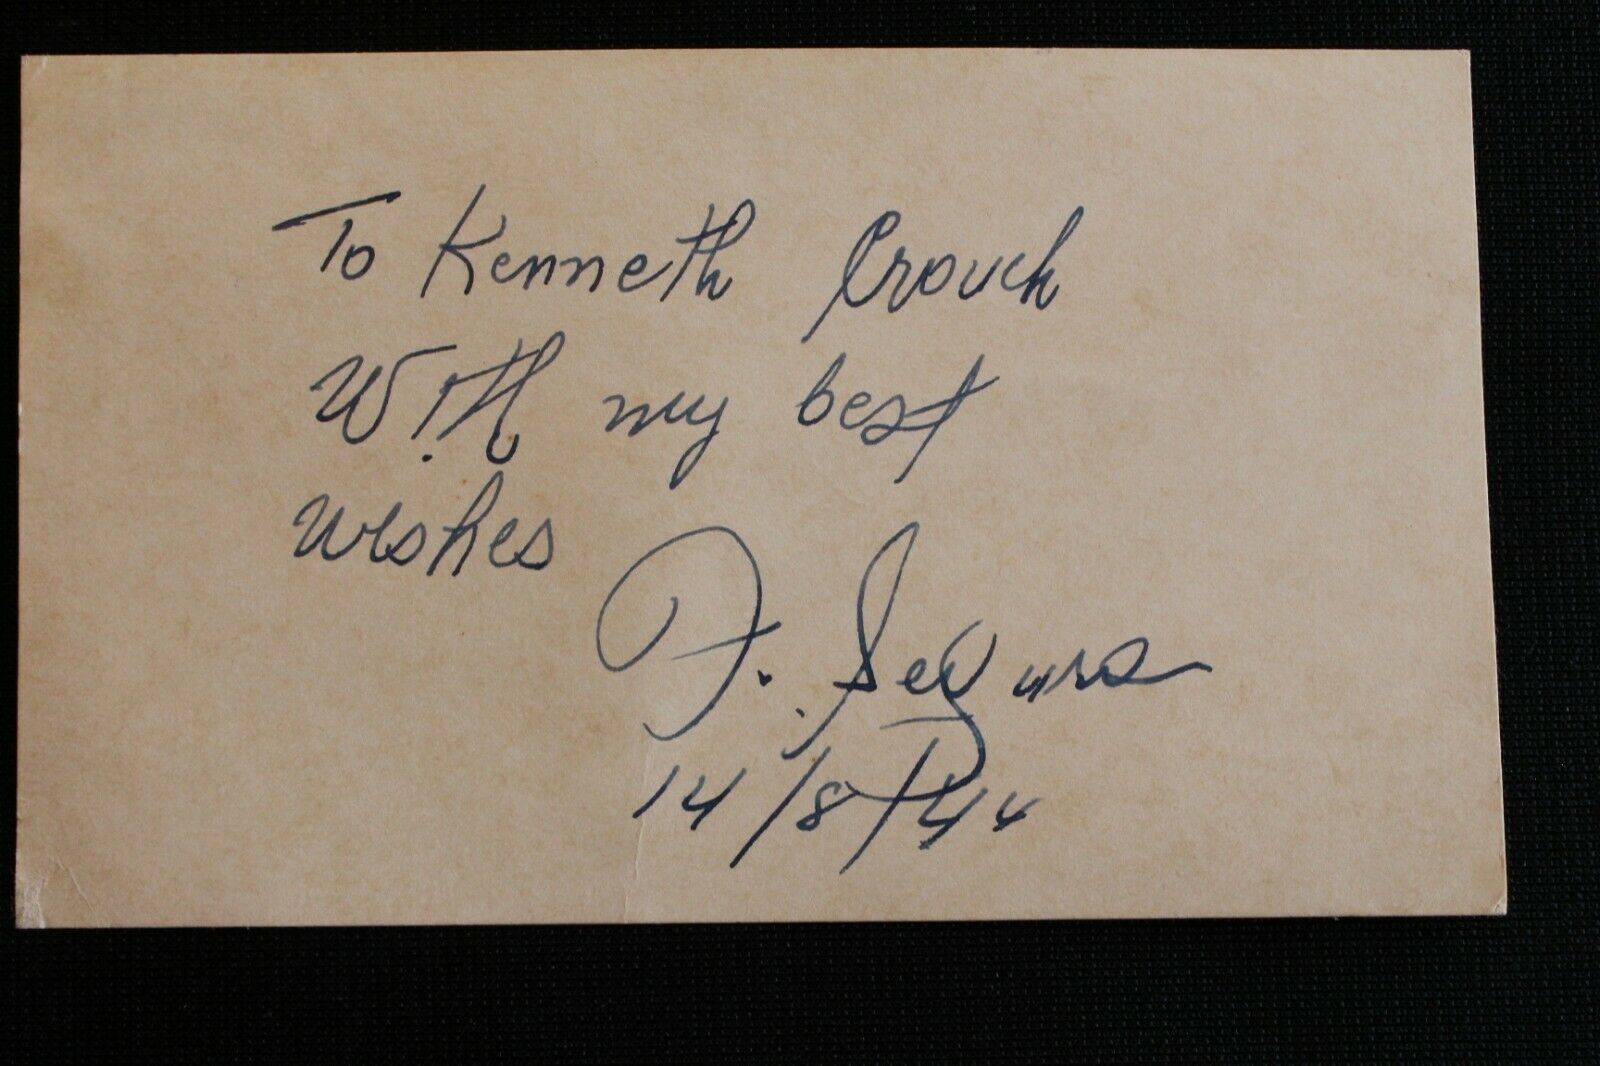 To Kenneth Crouch
With my best
wishes
F. Segura
14/8/44